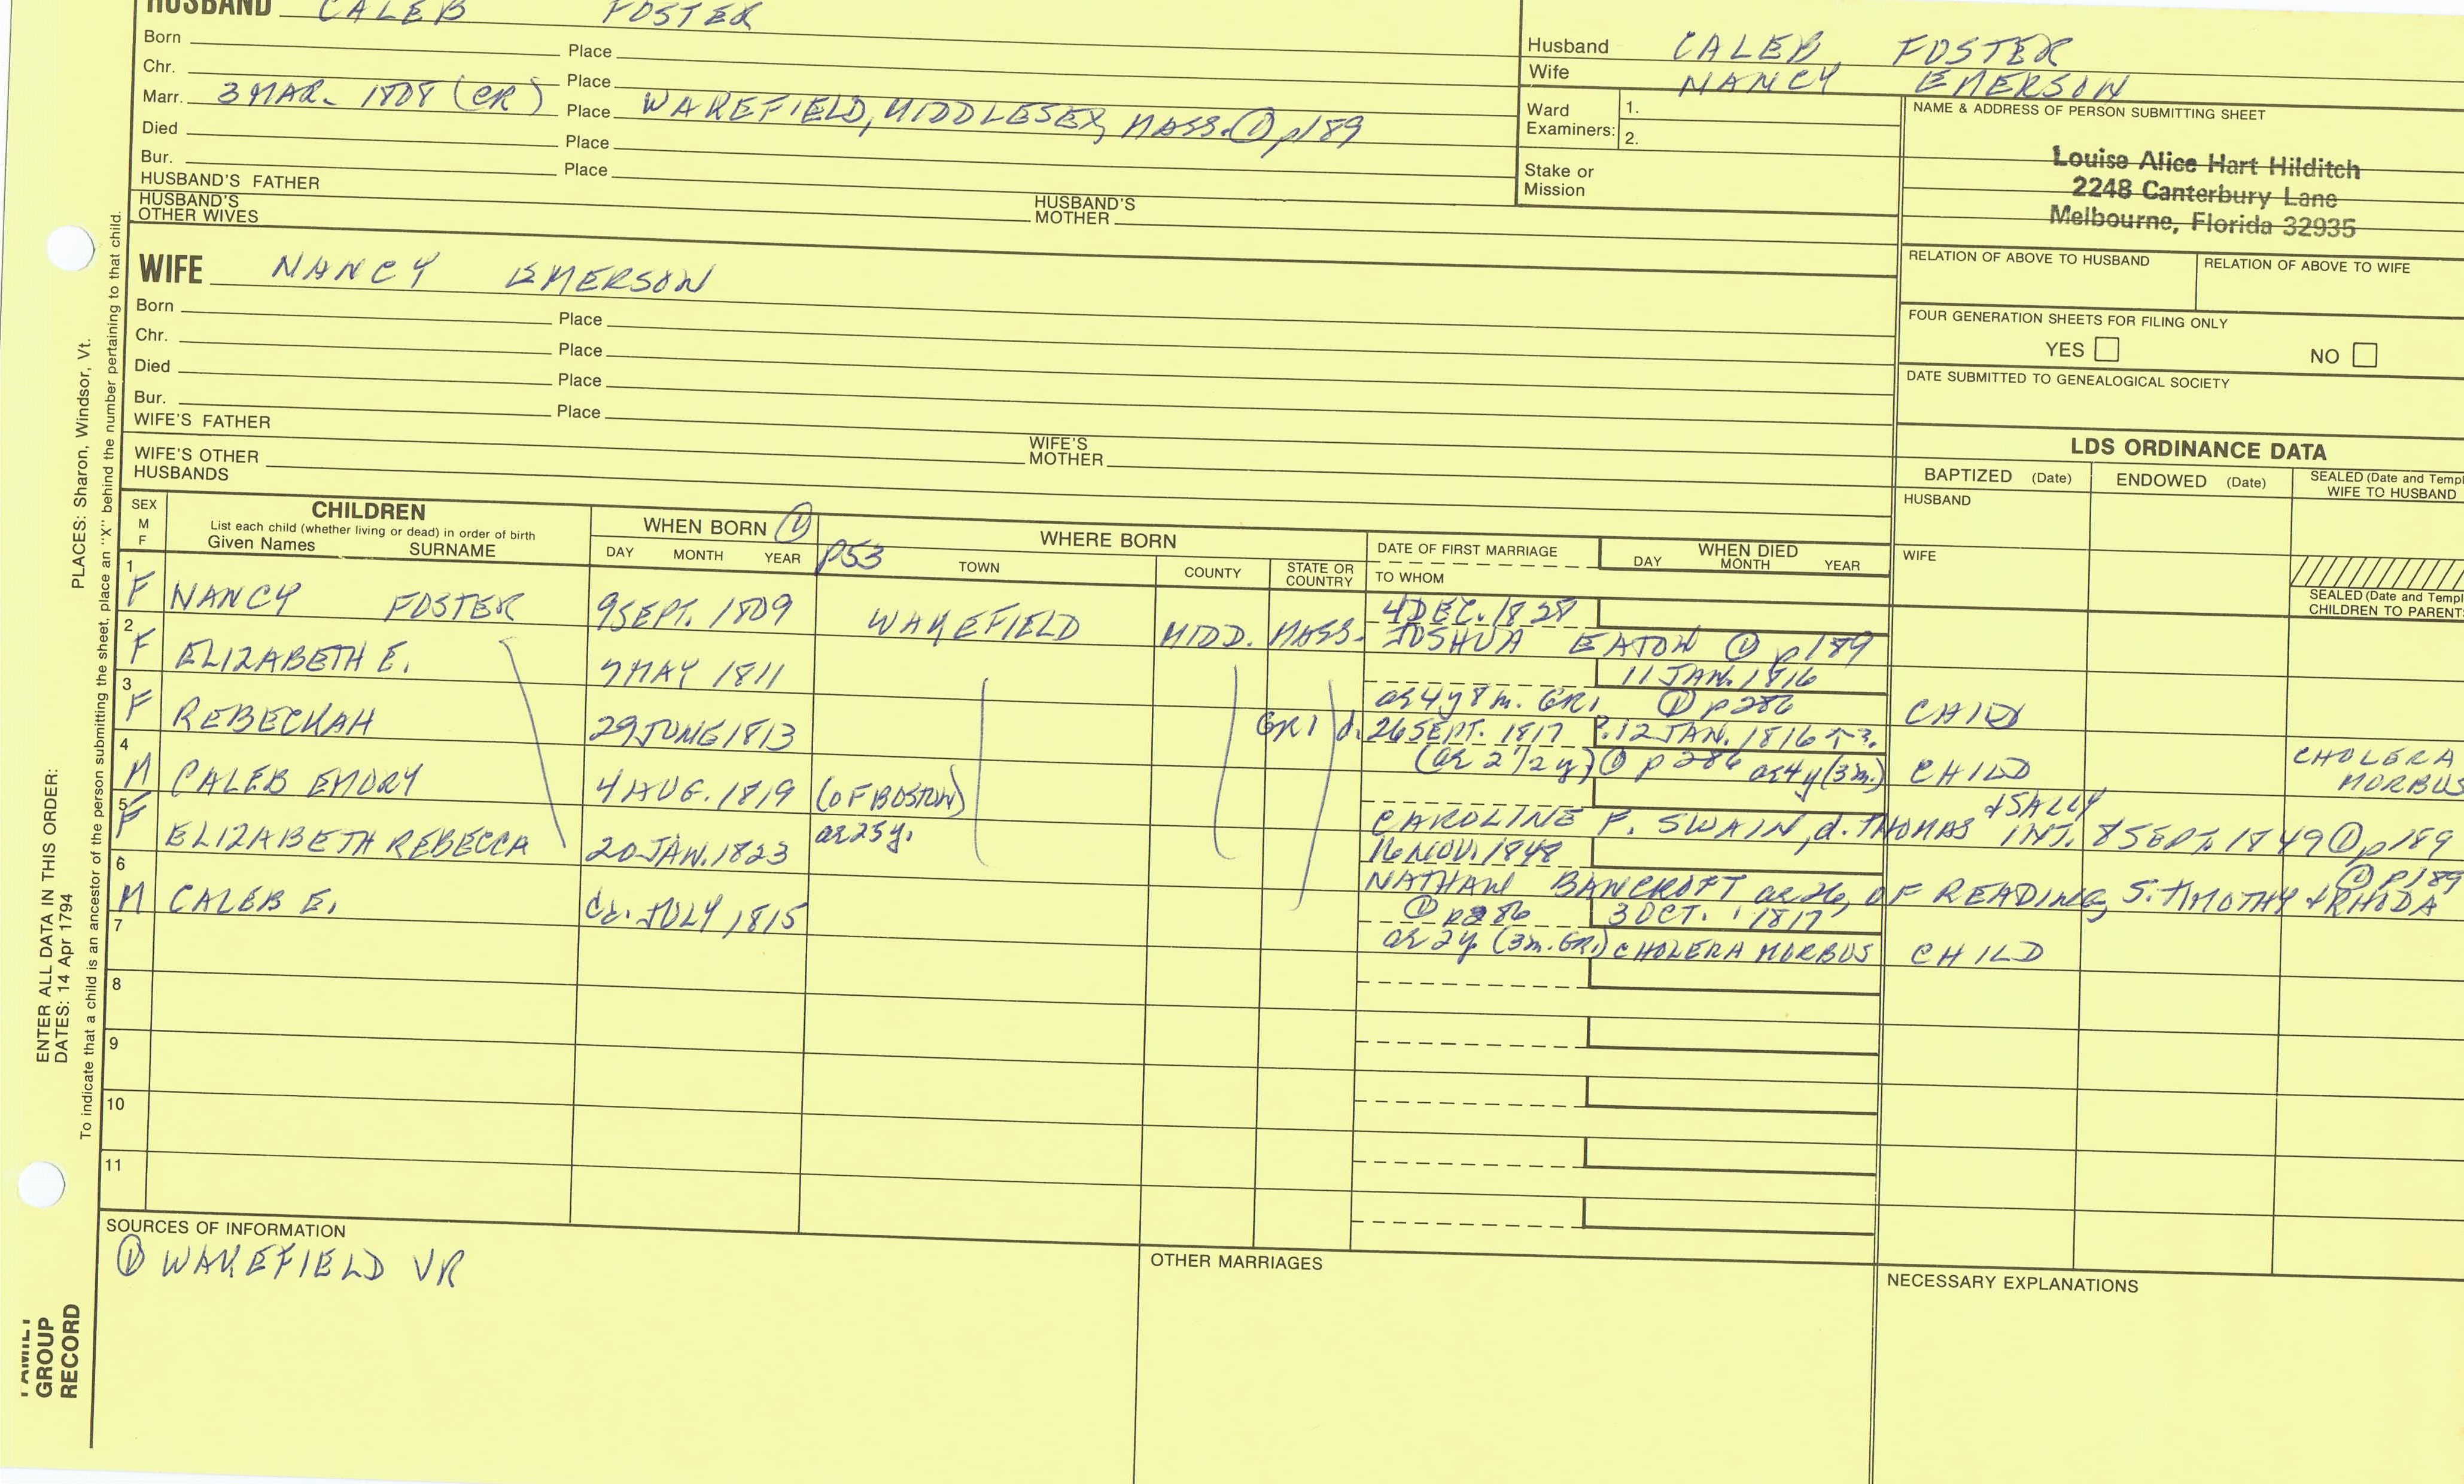 HUSBAND CALEB FOSTER
Born Place
Chr. Place
Marr. 3 MAR. 1808 (CR) Place WAKEFIELD, MIDDLESEX, MASS. ① p189
Died Place
Bur. Place
HUSBAND'S FATHER
HUSBAND'S MOTHER
HUSBAND'S OTHER WIVES
Husband CALEB FOSTER
Wife NANCY EMERSON
Ward Examiners: 1.
2.
Stake or Mission
NAME & ADDRESS OF PERSON SUBMITTING SHEET
Louise Alice Hart Hilditch
2248 Canterbury Lane
Melbourne, Florida 32935
RELATION OF ABOVE TO HUSBAND RELATION OF ABOVE TO WIFE
FOUR GENERATION SHEETS FOR FILING ONLY
YES NO
DATE SUBMITTED TO GENEALOGICAL SOCIETY
WIFE NANCY EMERSON
Born Place
Chr. Place
Died Place
Bur. Place
WIFE'S FATHER
WIFE'S MOTHER
WIFE'S OTHER HUSBANDS
LDS ORDINANCE DATA
BAPTIZED (Date) ENDOWED (Date) SEALED (Date and Templ
WIFE TO HUSBAND
HUSBAND
WIFE
SEALED (Date and Templ
CHILDREN TO PARENT
SEX M F
CHILDREN
List each child (whether living or dead) in order of birth
Given Names SURNAME
WHEN BORN ①
DAY MONTH YEAR
p53
WHERE BORN
TOWN COUNTY STATE OR COUNTRY
DATE OF FIRST MARRIAGE
TO WHOM
WHEN DIED
DAY MONTH YEAR
1 F NANCY FOSTER 9 SEPT. 1809 WAKEFIELD MIDD. MASS. 4 DEC. 1828
JOSHUA EATON ① p189
2 F ELIZABETH E. 7 MAY 1811 11 JAN. 1816
ae 4y 8m. GR1 ① p286 CHILD
3 F REBECKAH 29 JUNE 1813 GR1 d. 26 SEPT. 1817 P. 12 JAN. 1816
(ae 2 1/2 y) ① p286 ae 4y (3m.) CHILD CHOLERA MORBUS
4 M CALEB EMORY 4 AUG. 1819 (OF BOSTON) ae 25y.
CAROLINE P. SWAIN, d. THOMAS + SALLY INT. 8 SEPT. 1849 ① p189
5 F ELIZABETH REBECCA 20 JAN. 1823 16 NOV. 1848
NATHAN BANCROFT ae 26, OF READING, S. TIMOTHY + RHODA ① p189
6 M CALEB E. cc. JULY 1815 ① p286 3 OCT. 1817
ae 2y (3m. GR1) CHOLERA MORBUS CHILD
7
8
9
10
11
SOURCES OF INFORMATION
① WAKEFIELD VR
OTHER MARRIAGES
NECESSARY EXPLANATIONS
ENTER ALL DATA IN THIS ORDER:
DATES: 14 Apr 1794
PLACES: Sharon, Windsor, Vt.
To indicate that a child is an ancestor of the person submitting the sheet, place an "X" behind the number pertaining to that child.
FAMILY
GROUP
RECORD